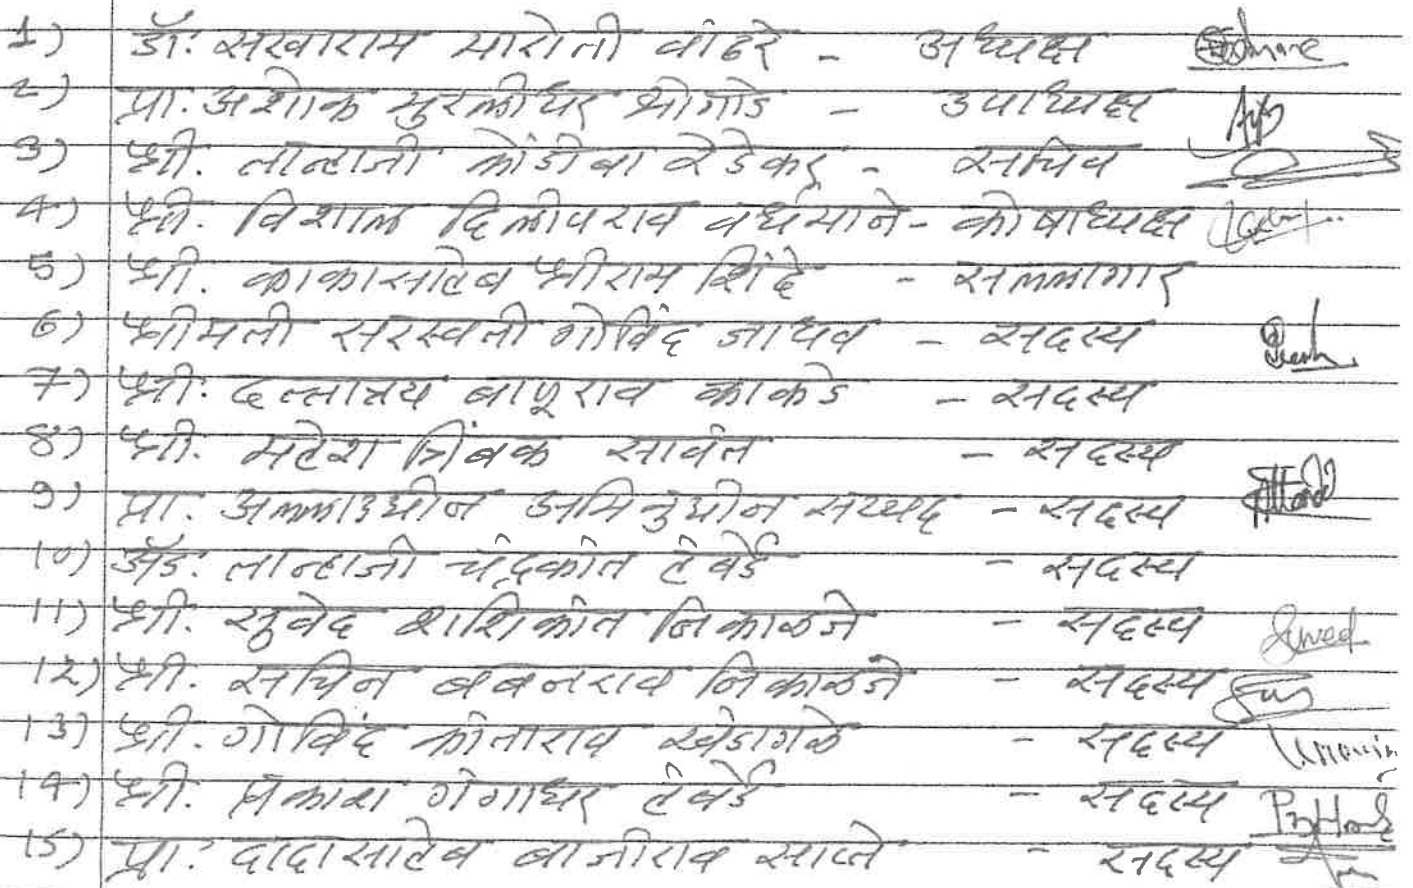 1) डॉ. सखाराम मारोती वांढरे - अध्यक्ष
2) प्रा. अशोक मुरलीधर भोगाडे - उपाध्यक्ष
3) श्री. तान्हाजी कोंडीबा रेडेकर - सचिव
4) श्री. विशाल दिलीपराव वर्धमाने - कोषाध्यक्ष
5) श्री. काकासाहेब श्रीराम शिंदे - सल्लागार
6) श्रीमती सरस्वती गोविंद जाधव - सदस्य
7) श्री. दत्तात्रय बापूराव काकडे - सदस्य
8) श्री. महेश त्रिंबक सावंत - सदस्य
9) प्रा. अल्लाउद्दीन अमिनुद्दीन सय्यद - सदस्य
10) अॅड. तान्हाजी चंद्रकांत हंबर्डे - सदस्य
11) श्री. सुवेद शशिकांत निकाळजे - सदस्य
12) श्री. सचिन बबनराव निकाळजे - सदस्य
13) श्री. गोविंद कांताराव खेडागळे - सदस्य
14) श्री. प्रकाश गंगाधर हंबर्डे - सदस्य
15) प्रा. दादासाहेब बाजीराव साप्ते - सदस्य